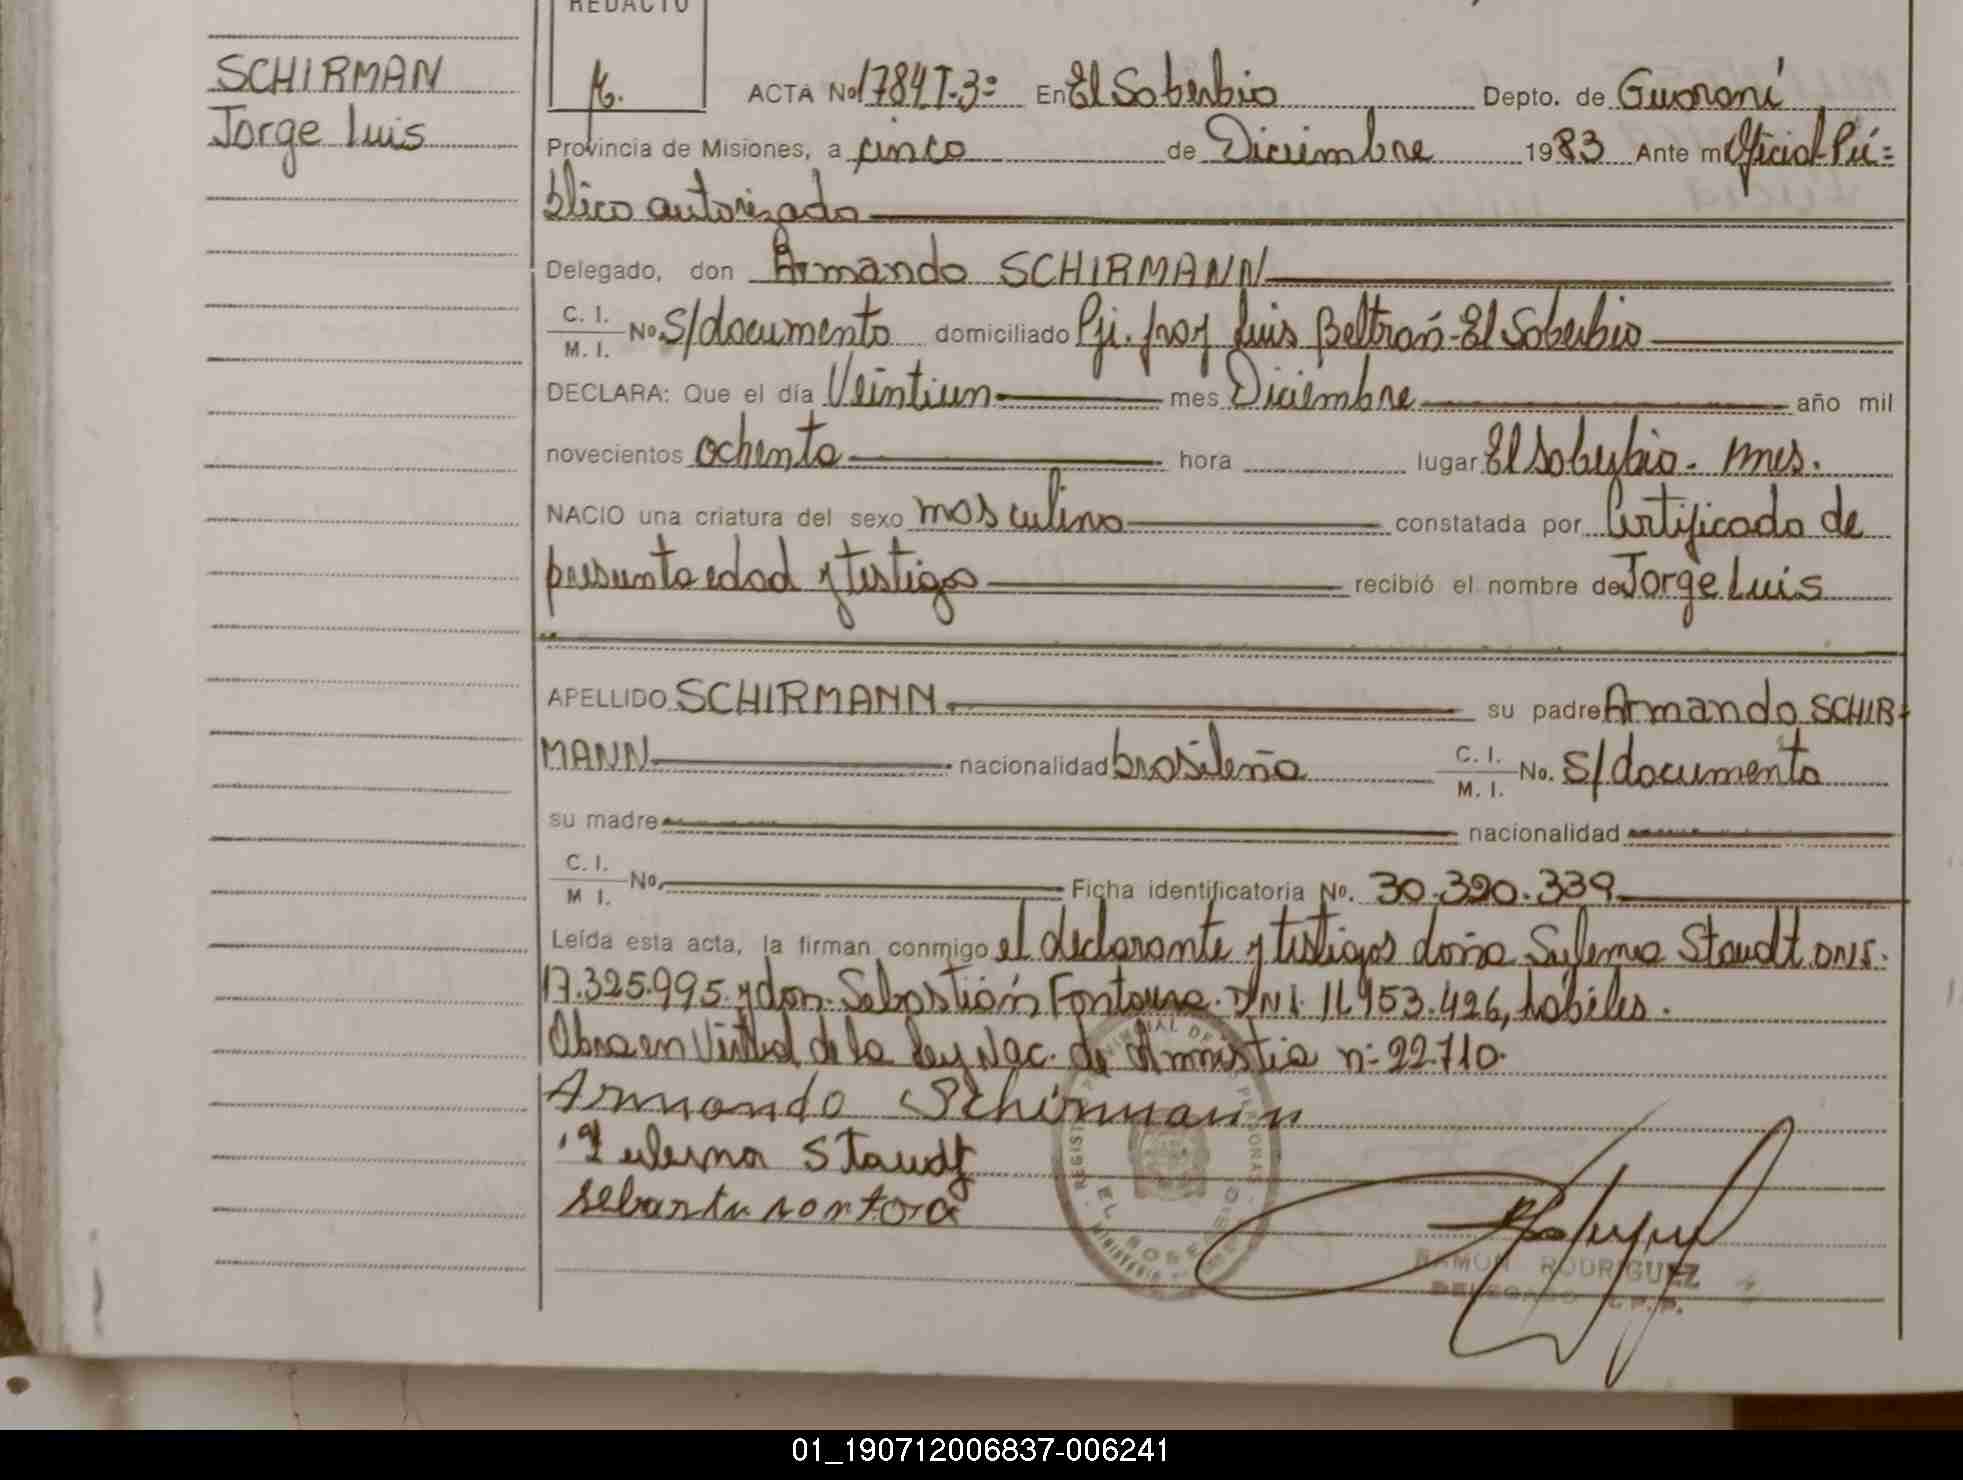 REDACTO
SCHIRMAN
Jorge Luis
ACTA No 1784 T.3º En El Soberbio Depto. de Guaraní
Provincia de Misiones, a cinco de Diciembre 1983 Ante mi Oficial Pú=
blico autorizado
Delegado, don Armando SCHIRMANN
C. I.
M. I. No. S/documento domiciliado Pji. fray Luis Beltrán-El Soberbio
DECLARA: Que el día Veintiun mes Diciembre año mil
novecientos ochenta hora lugar El Soberbio. Mnes.
NACIO una criatura del sexo masculino constatada por Certificado de
presunta edad y testigos recibió el nombre de Jorge Luis
APELLIDO SCHIRMANN su padre Armando SCHIR-
MANN nacionalidad brasileña C. I.
M. I. No. S/documento
su madre nacionalidad
C. I.
M I. No. Ficha identificatoria No. 30.390.339
Leída esta acta, la firman conmigo el declarante y testigos doña Sulema Staudt DNI.
17.325.995 y don Sebastián Fontoura. DNI. 16.953.426, hábiles.
Obra en Virtud de la ley Nac. de Amnistia nº 22.710.
Armando Schirmann
Sulema Staudt
RAMON RODRIGUEZ
DELEGADO R.P.P.
01_190712006837-006241